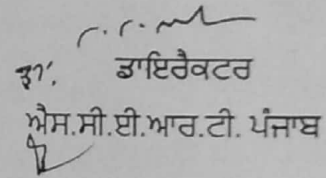 ਡਾ. ਡਾਇਰੈਕਟਰ
ਐਸ.ਸੀ.ਈ.ਆਰ.ਟੀ. ਪੰਜਾਬ